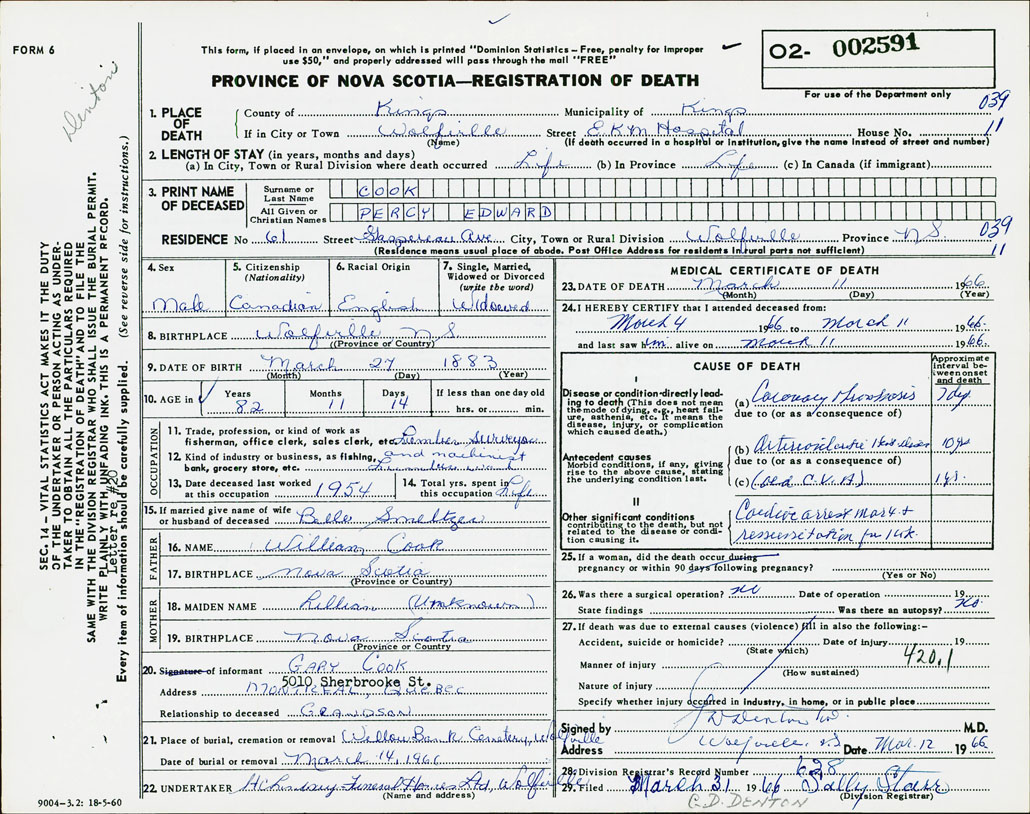 FORM 6
Denton
This form, if placed in an envelope, on which is printed "Dominion Statistics – Free, penalty for improper
use $50," and properly addressed will pass through the mail "FREE"
PROVINCE OF NOVA SCOTIA—REGISTRATION OF DEATH
02- 002591
For use of the Department only
039
11
1. PLACE OF DEATH
County of Kings Municipality of Kings
If in City or Town Wolfville Street E.K.M Hospital House No.
(Name) (If death occurred in a hospital or institution, give the name instead of street and number)
2. LENGTH OF STAY (in years, months and days)
(a) In City, Town or Rural Division where death occurred Life (b) In Province Life (c) In Canada (if immigrant)
3. PRINT NAME OF DECEASED
Surname or Last Name COOK
All Given or Christian Names PERCY EDWARD
RESIDENCE No 61 Street Gaspereau Ave City, Town or Rural Division Wolfville Province NS 039
(Residence means usual place of abode. Post Office Address for residents in rural parts not sufficient) 11
4. Sex
Male
5. Citizenship (Nationality)
Canadian
6. Racial Origin
English
7. Single, Married, Widowed or Divorced (write the word)
Widowed
8. BIRTHPLACE Wolfville NS
(Province or Country)
9. DATE OF BIRTH March 27 1883
(Month) (Day) (Year)
10. AGE in Years 82 Months 11 Days 14 If less than one day old
hrs. or min.
OCCUPATION
11. Trade, profession, or kind of work as
fisherman, office clerk, sales clerk, etc. Lumber Surveyor
12. Kind of industry or business, as fishing, and machinist
bank, grocery store, etc.
13. Date deceased last worked at this occupation 1954
14. Total yrs. spent in this occupation Life
15. If married give name of wife or husband of deceased Belle Smeltzer
FATHER
16. NAME William Cook
17. BIRTHPLACE Nova Scotia
(Province or Country)
MOTHER
18. MAIDEN NAME Lillian (Unknown)
19. BIRTHPLACE Nova Scotia
(Province or Country)
20. Signature of informant GARY COOK
5010 Sherbrooke St.
Address MONTREAL, QUEBEC
Relationship to deceased GRANDSON
21. Place of burial, cremation or removal Willow Bank Cemetery, Wolfville
Date of burial or removal March 14, 1966
22. UNDERTAKER Funeral Home Ltd, Wolfville
(Name and address)
9004–3.2: 18-5-60
SEC. 14 – VITAL STATISTICS ACT MAKES IT THE DUTY
OF THE UNDERTAKER OR PERSON ACTING AS UNDER-
TAKER TO OBTAIN ALL THE PARTICULARS REQUIRED
IN THE "REGISTRATION OF DEATH" AND TO FILE THE
SAME WITH THE DIVISION REGISTRAR WHO SHALL ISSUE THE BURIAL PERMIT.
WRITE PLAINLY WITH UNFADING INK. THIS IS A PERMANENT RECORD.
Letter re #20
Every item of information should be carefully supplied. (See reverse side for instructions.)
MEDICAL CERTIFICATE OF DEATH
23. DATE OF DEATH March 11 1966
(Month) (Day) (Year)
24. I HEREBY CERTIFY that I attended deceased from:
March 4 1966 to March 11 1966
and last saw him alive on March 11 1966
CAUSE OF DEATH
Approximate interval between onset and death
I
Disease or condition directly leading to death (This does not mean the mode of dying, e.g., heart failure, asthenia, etc. It means the disease, injury, or complication which caused death.)
(a) Coronary thrombosis 7 dys
due to (or as a consequence of)
Antecedent causes
Morbid conditions, if any, giving rise to the above cause, stating the underlying condition last.
(b) Arteriosclerotic Heart disease 10 yrs
due to (or as a consequence of)
(c) (old C.V.A) 1 yr.
II
Other significant conditions contributing to the death, but not related to the disease or condition causing it.
Cardiac arrest Mar 4 +
resuscitation for 1 wk.
25. If a woman, did the death occur during
pregnancy or within 90 days following pregnancy?
(Yes or No)
26. Was there a surgical operation? No Date of operation 19
State findings Was there an autopsy? No.
27. If death was due to external causes (violence) fill in also the following:-
Accident, suicide or homicide? Date of injury 19
(State which)
420.1
Manner of injury
(How sustained)
Nature of injury
Specify whether injury occurred in industry, in home, or in public place
Signed by Denton M.D.
Address Wolfville, NS Date Mar. 12 1966
28. Division Registrar's Record Number 628
29. Filed March 31 1966 Sally Starr
(Division Registrar)
G.D. DENTON